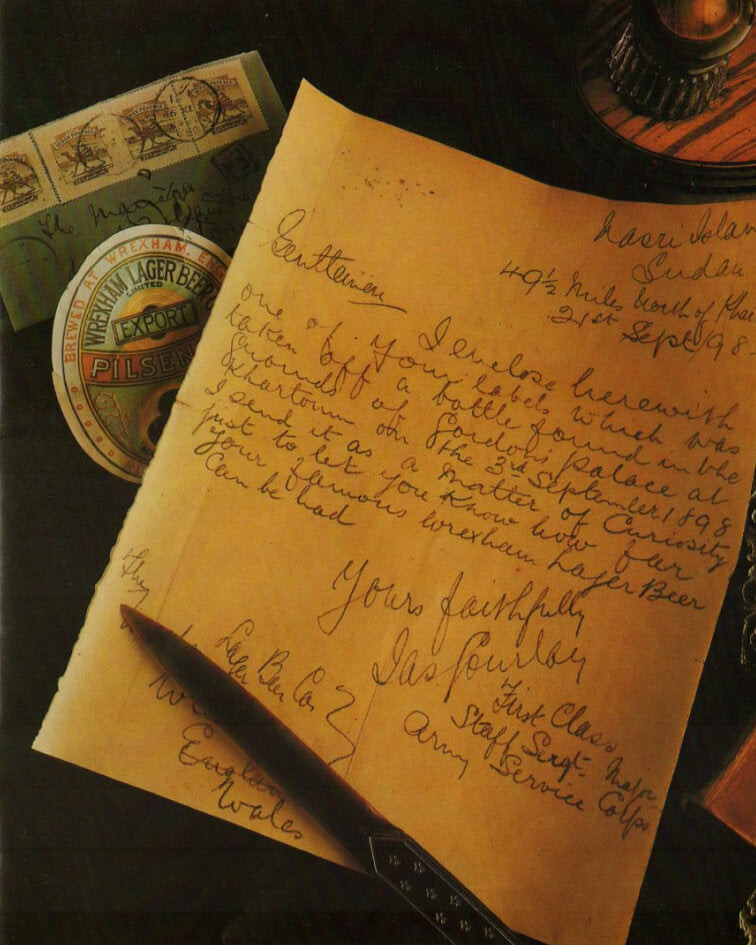 The Manager
BREWED AT WREXHAM, ENG
WREXHAM LAGER BEER C
LIMITED
EXPORT
PILSEN
Nasri Islan
Sudan
49½ Miles North of Khar
21st Sept/98
Gentlemen
I enclose herewith
one of your labels which was
taken off a bottle found in the
grounds of Gordons palace at
Khartoum on the 3rd September 1898
I send it as a matter of Curiosity
just to let you know how far
your famous Wrexham Lager Beer
Can be had
Yours faithfully
Jas Gourlay
First Class
Staff Sergt. Major
Army Service Corps
The
Lager Beer Co
Wre
England
Wales